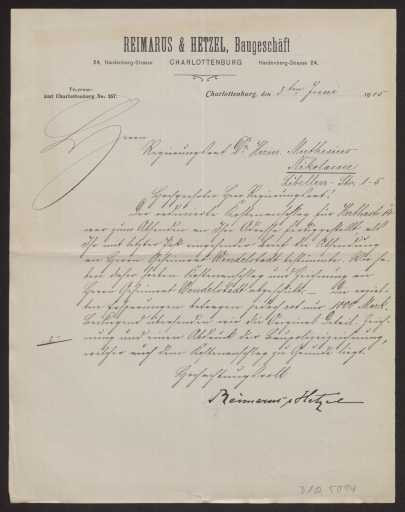 REIMARUS & HETZEL, Baugeschäft
24, Hardenberg-Strasse CHARLOTTENBURG Hardenberg-Strasse 24.
Fernruf:
Amt Charlottenburg No. 167.
Charlottenburg, den 3ten Juni 1905
Herrn
Regierungsrat Dr. Herm. Muthesius
Nikolassee
Libellen-Str. 1-5
Hochgeehrter Herr Regierungsrat!
Der reduzierte Kostenanschlag für
war zum Absenden an Ihre Adresse fertiggestellt als
Ihr mit letzter Post eingehender Brief die Absendung
an Herrn Geheimrat Wendelstadt bestimmte. Wir ha-
ben daher soeben Kostenanschlag und Zeichnung an
Herrn Geheimrat Wendelstadt abgeschickt. - Die erziel-
ten Ersparungen betragen jedoch nur 1000 Mark.
Beiliegend übersenden wir die Original Detail Zeich-
nung und einen Abdruck der Baupolizeizeichnung,
welcher auch dem Kostenanschlag zu Grunde liegt.
Hochachtungsvoll
Reimarus & Hetzel